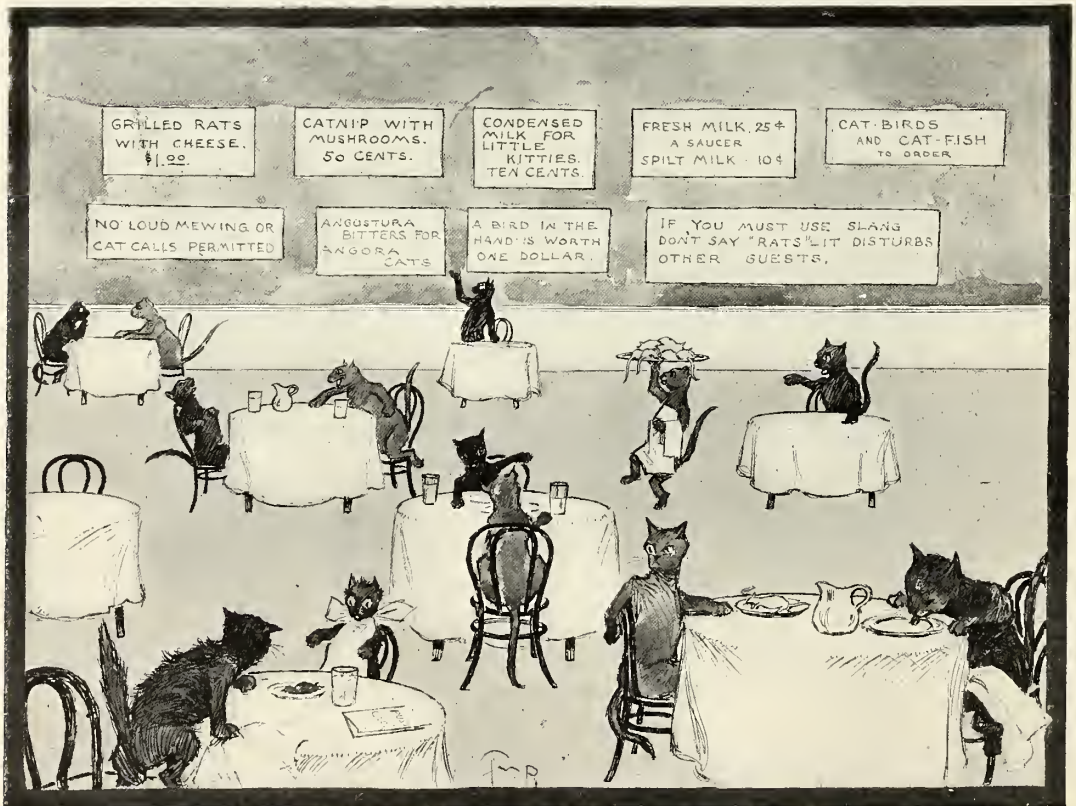 GRILLED RATS
WITH CHEESE.
$1.00.
CATNIP WITH
MUSHROOMS.
50 CENTS.
CONDENSED
MILK FOR
LITTLE
KITTIES.
TEN CENTS.
FRESH MILK. 25¢
A SAUCER
SPILT MILK · 10¢
CAT-BIRDS
AND CAT-FISH
TO ORDER
NO LOUD MEWING OR
CAT CALLS PERMITTED
ANGOSTURA
BITTERS FOR
ANGORA
CATS
A BIRD IN THE
HAND IS WORTH
ONE DOLLAR.
IF YOU MUST USE SLANG
DON'T SAY "RATS"–IT DISTURBS
OTHER GUESTS.